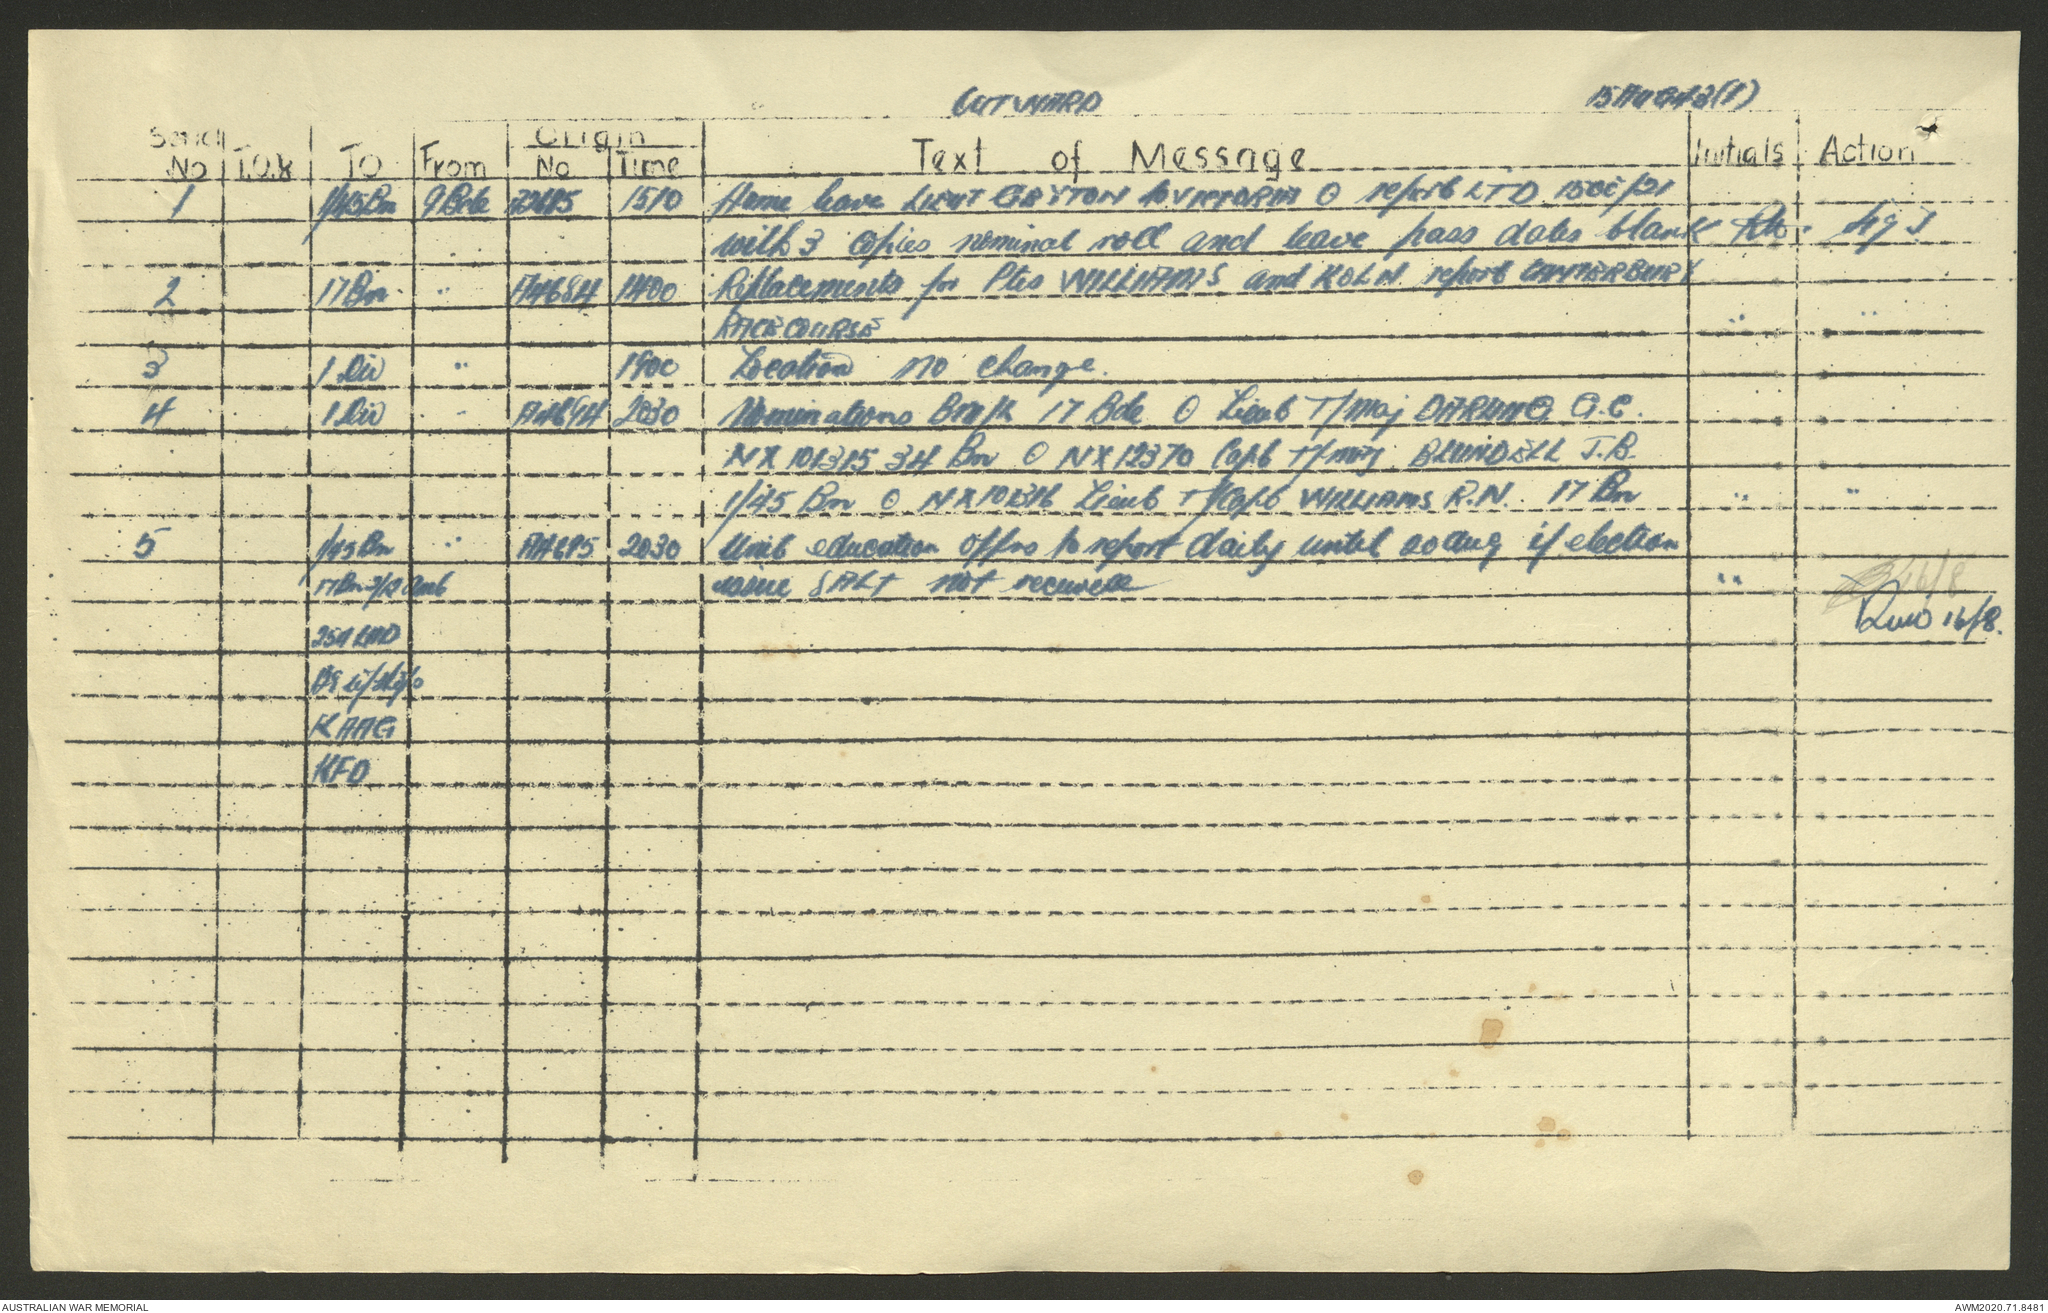 OUTWARD 15 AUG 43 (1)
Serial Origin
No T.O.R TO From No Time Text of Message Initials Action
1 1/45 Bn 9 Bde 1510 Home leave LIEUT to VICTORIA O report LTD
with 3 copies nominal roll and leave pass dates blank
2 17 Bn " A4684 1400 Replacements for Ptes WILLIAMS and report CANTERBURY
RACECOURSE " "
3 1 Div " 1900 Location no change.
4 1 Div " A4694 2030 Nominations 17 Bde O Lieut T/Maj DARLING G.C.
NX 101315 34 Bn O NX 12370 Capt T/Maj BLUNDELL J.B.
1/45 Bn O Lieut T/Capt WILLIAMS R.N. 17 Bn " "
5 1/45 Bn " A4695 2030 Unit education offrs to report daily until 20 Aug if election
17 Bn Amb SALT not received " 16/8
LAD 16/8.
KAAG
KFD
AUSTRALIAN WAR MEMORIAL AWM2020.71.8481